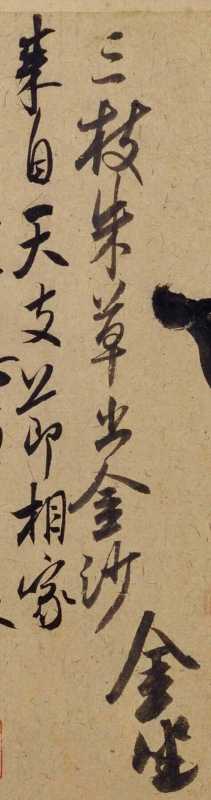 金坐
三枝朱草出金沙
来自天支節相家